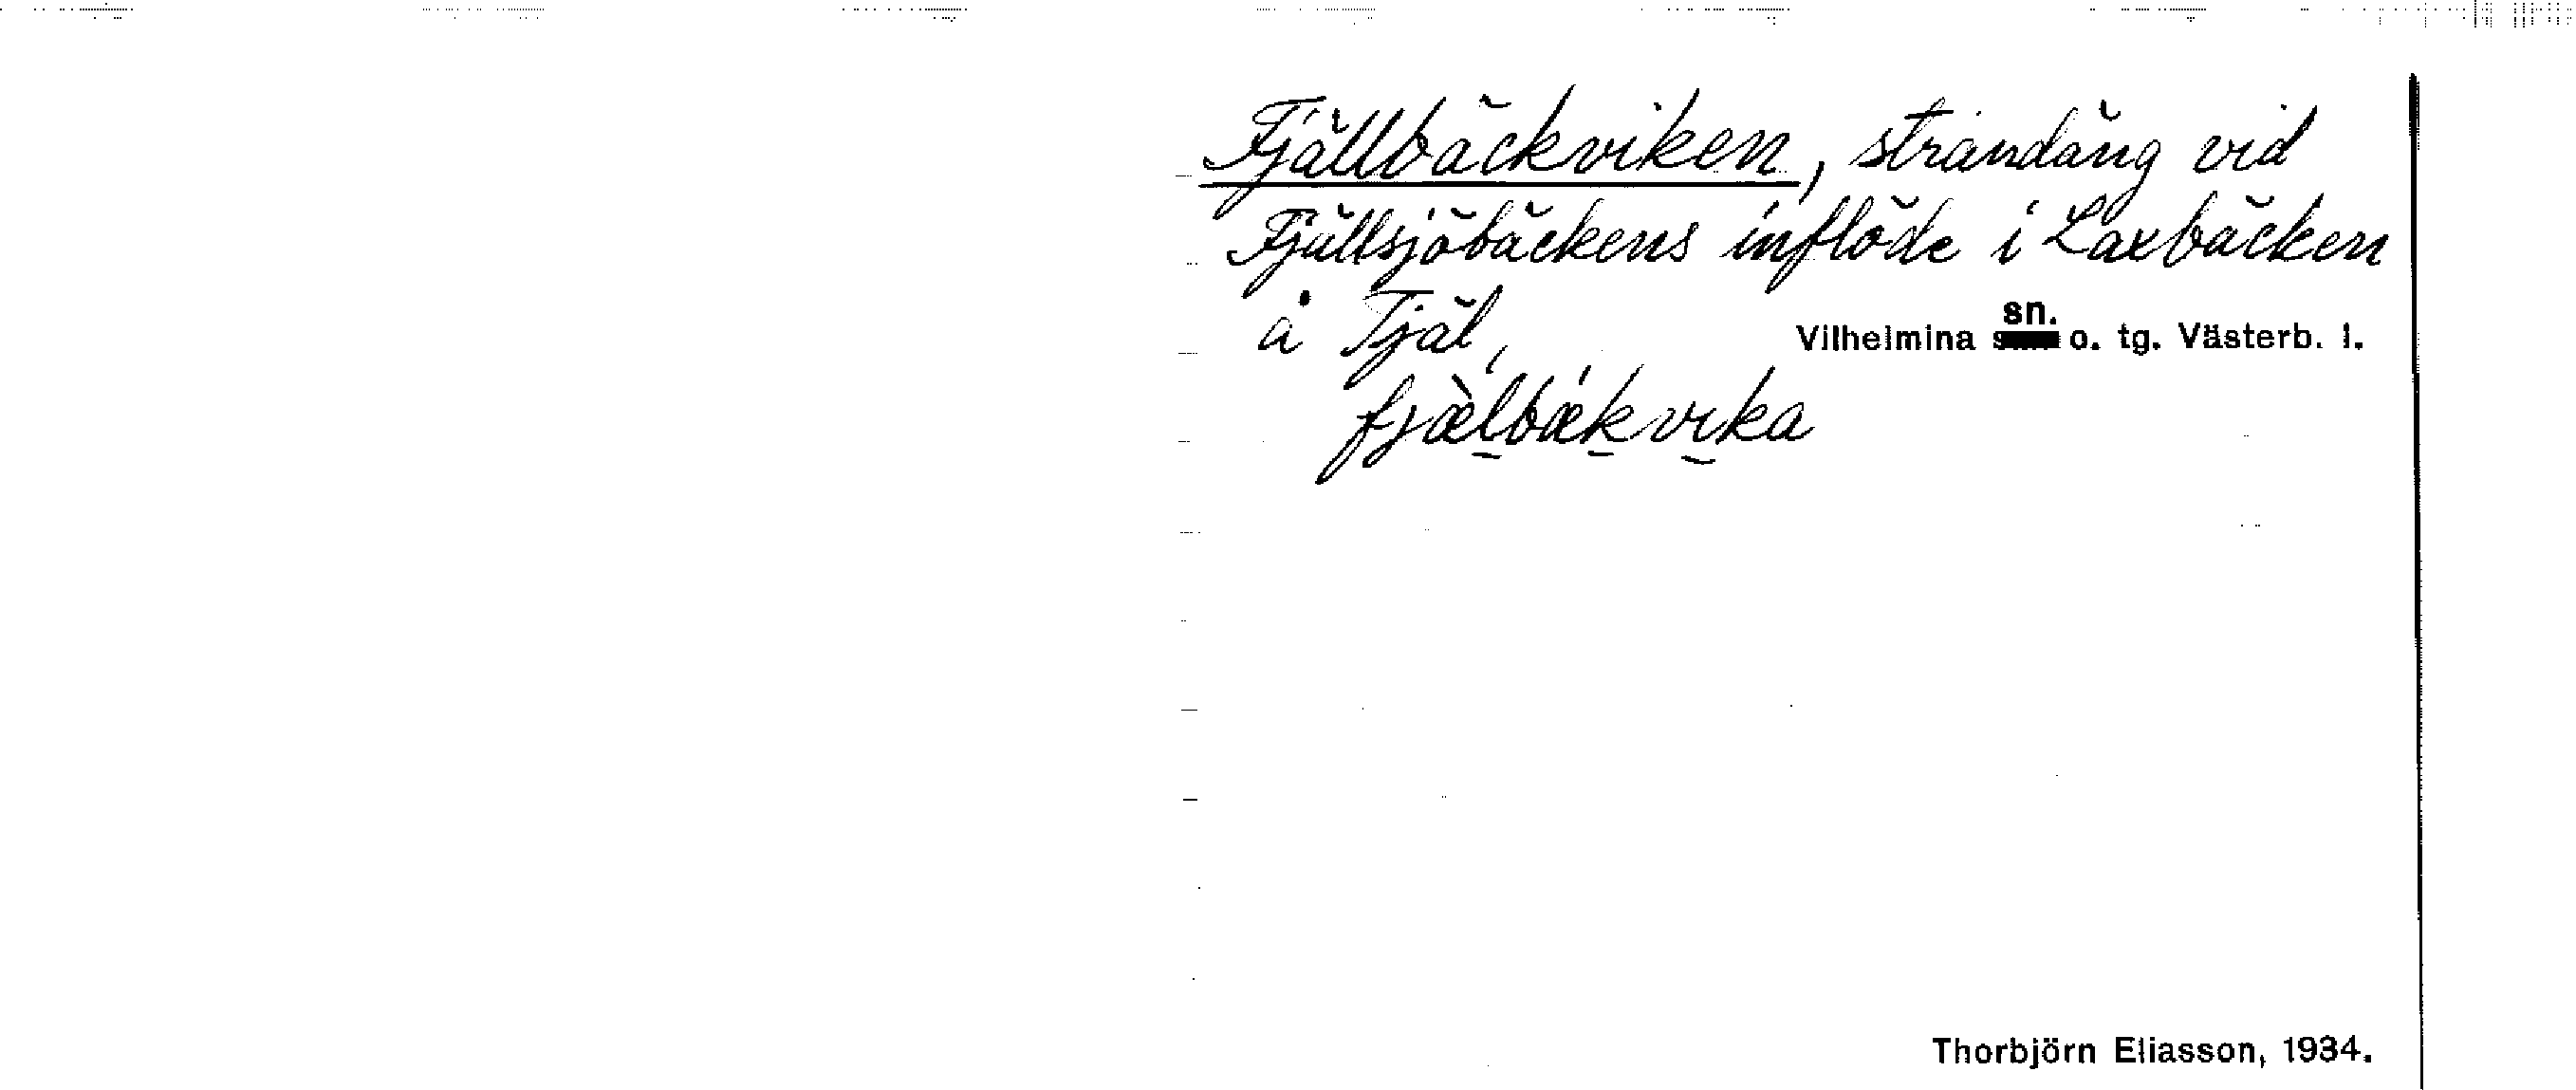 Fjällbäckviken, strandäng vid
Fjällsjöbäckens inflöde i Laxbäcken
å Tjäl,
Vilhelmina sn. o. tg. Västerb. l.
fjæ̀lbækvika
Thorbjörn Eliasson, 1934.